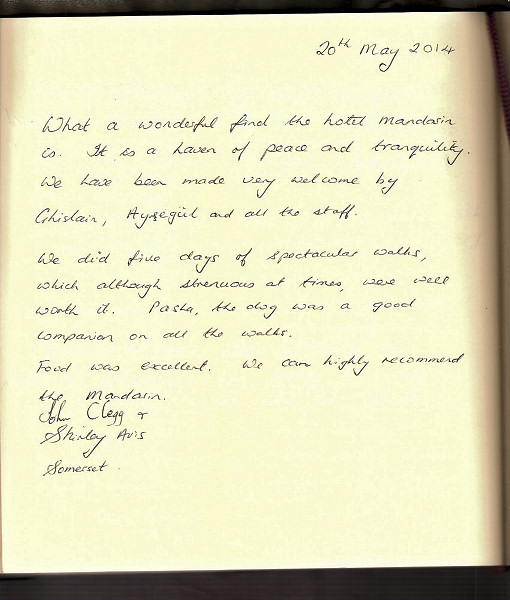 20th May 2014
What a wonderful find the hotel Mandarin
is. It is a haven of peace and tranquility.
We have been made very welcome by
Ghislain, Ayşegül and all the staff.
We did five days of spectacular walks,
which although strenuous at times, were well
worth it. Pasha, the dog was a good
companion on all the walks.
Food was excellent. We can highly recommend
the Mandarin.
John Clegg &
Shirley Avis
Somerset.